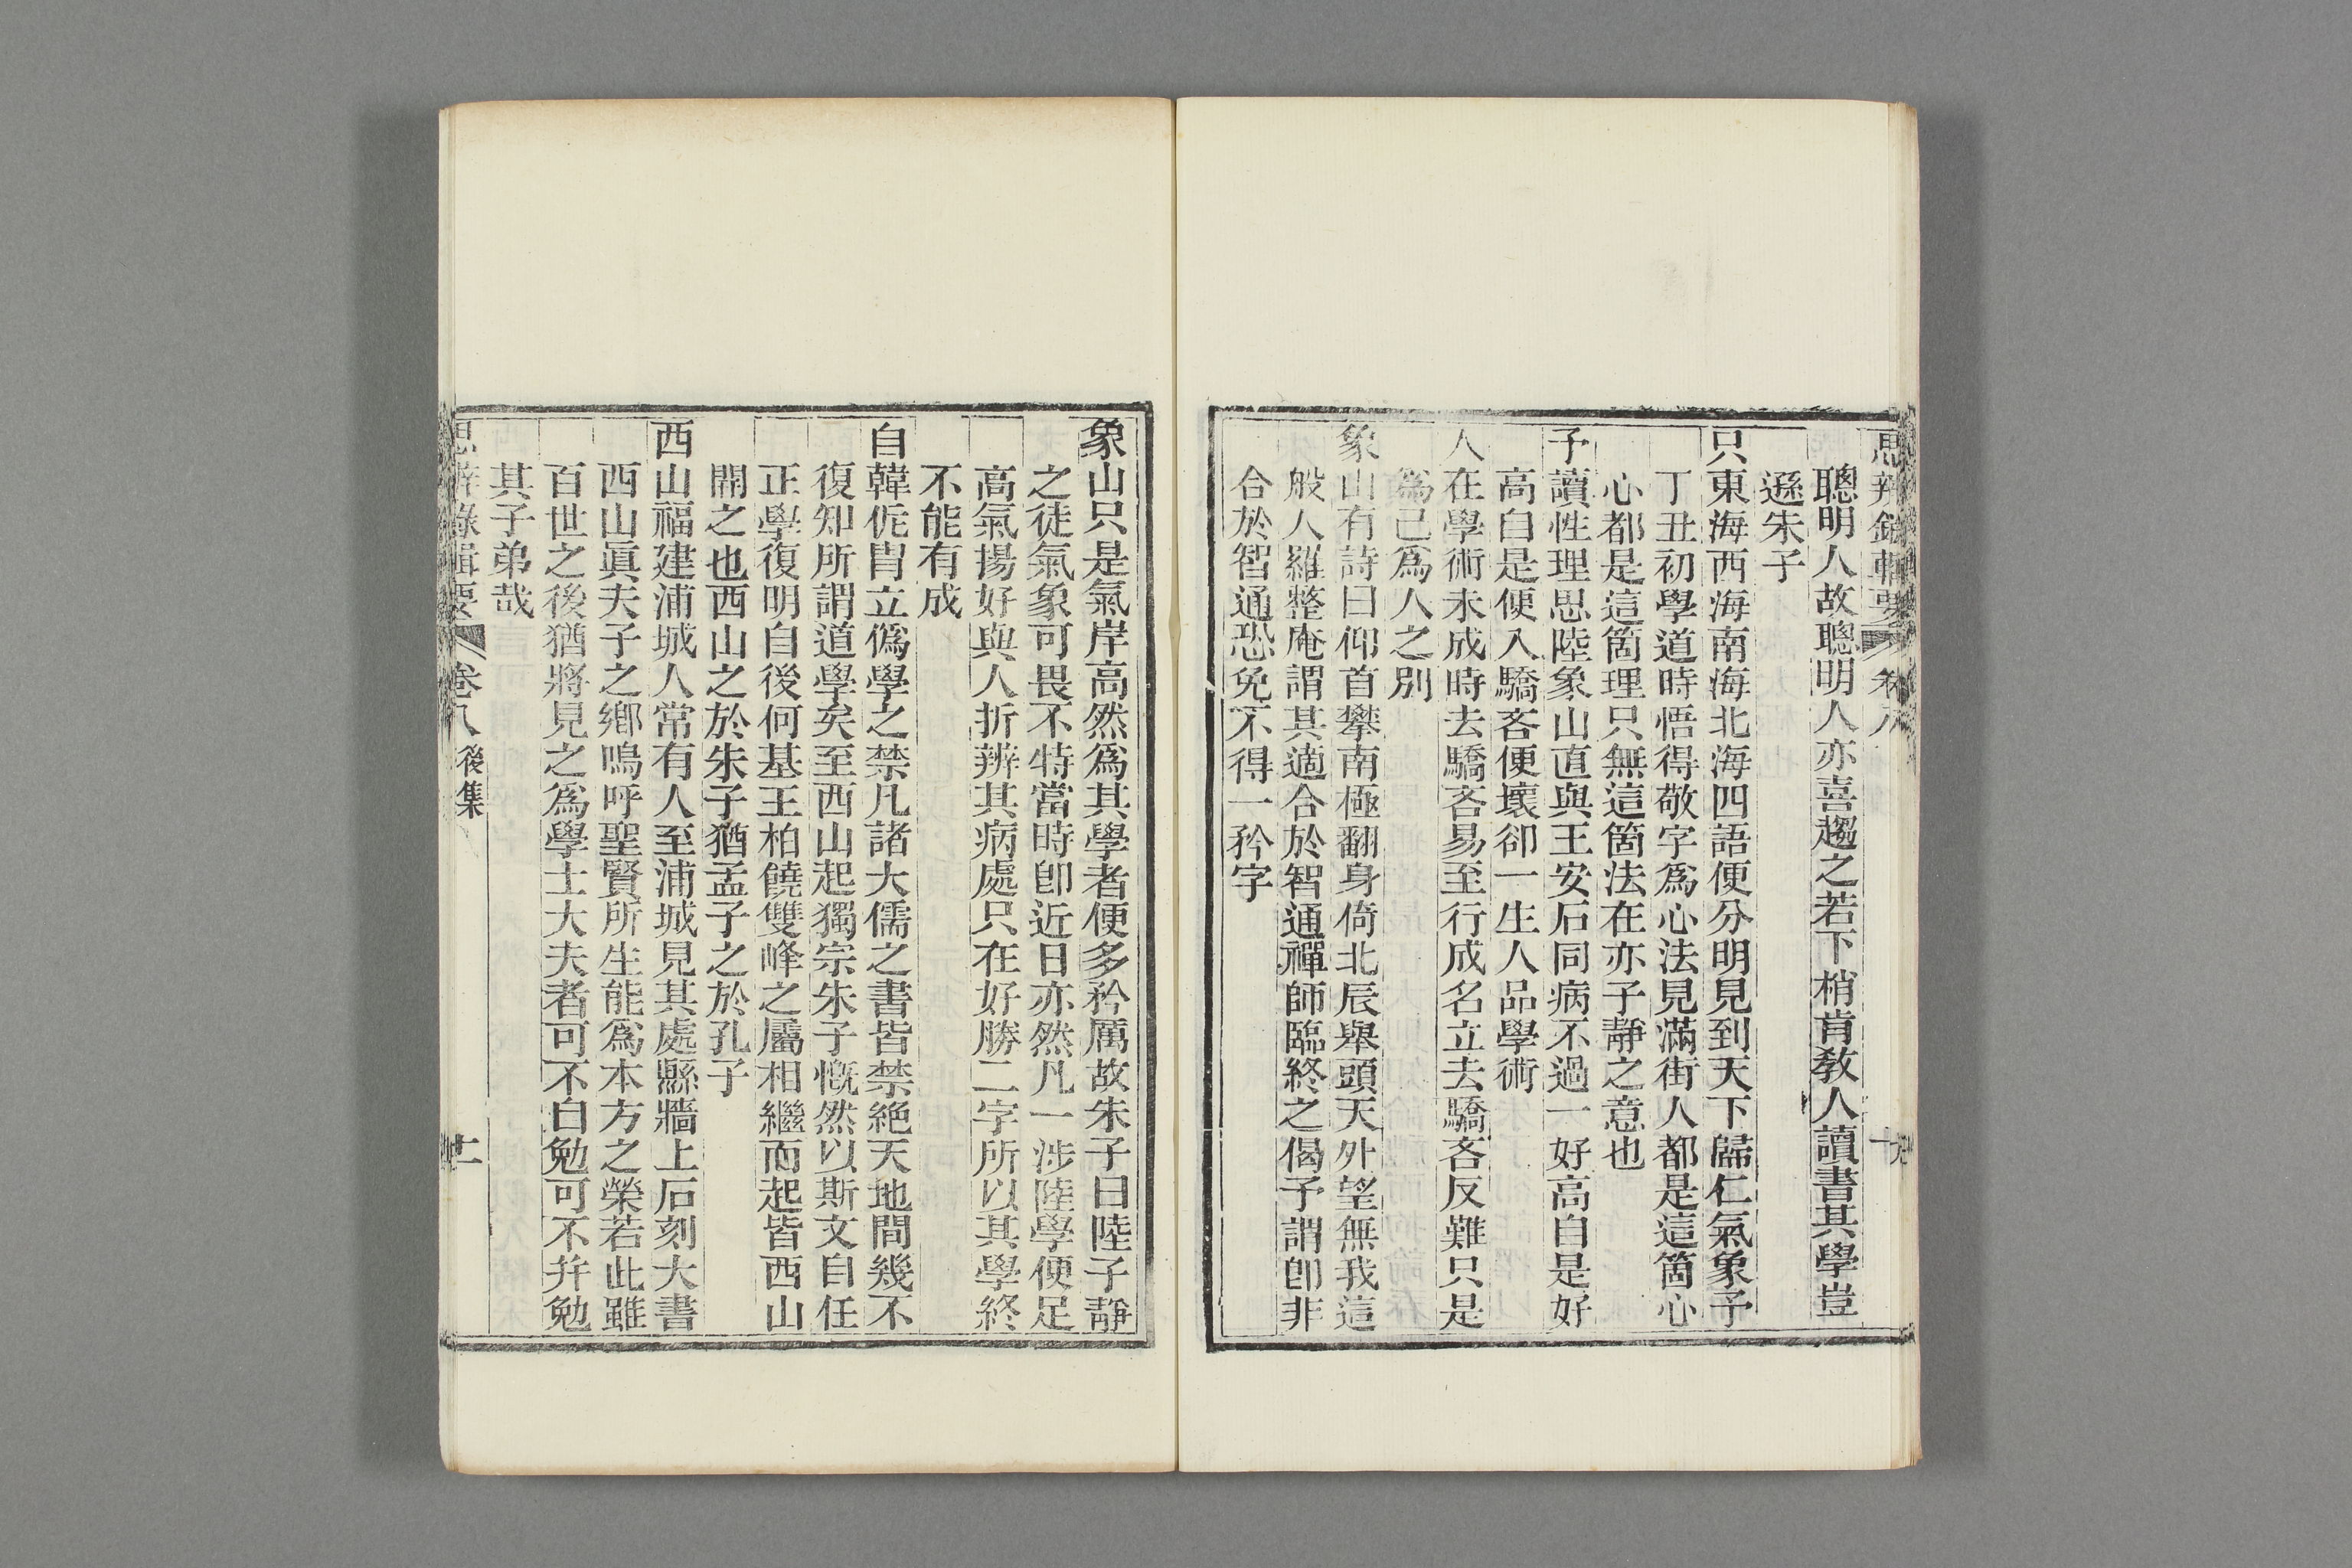 聰明人故聰明人亦喜趨之若下梢肯教人讀書其學豈
遜朱子
只東海西海南海北海四語便分明見到天下歸仁氣象予
丁丑初學道時悟得敬字爲心法見滿街人都是這箇心
心都是這箇理只無這箇法在亦子靜之意也
予讀性理思陸象山直與王安石同病不過一好高自是好
高自是便入驕吝便壞卻一生人品學術
人在學術未成時去驕吝易至行成名立去驕吝反難只是
爲己爲人之別
象山有詩曰仰首攀南極翻身倚北辰舉頭天外望無我這
般人羅整庵謂其適合於智通禪師臨終之偈予謂卽非
合於智通恐免不得一矜字
象山只是氣岸高然爲其學者便多矜厲故朱子曰陸子靜
之徒氣象可畏不特當時卽近日亦然凡一涉陸學便足
高氣揚好與人折辨其病處只在好勝二字所以其學終
不能有成
自韓侂胄立僞學之禁凡諸大儒之書皆禁絕天地間幾不
復知所謂道學矣至西山起獨宗朱子慨然以斯文自任
正學復明自後何基王柏饒雙峰之屬相繼而起皆西山
開之也西山之於朱子猶孟子之於孔子
西山福建浦城人常有人至浦城見其處縣牆上石刻大書
西山眞夫子之鄉嗚呼聖賢所生能爲本方之榮若此雖
百世之後猶將見之爲學士大夫者可不自勉可不幷勉
其子弟哉
思辨錄輯要 卷八 後集